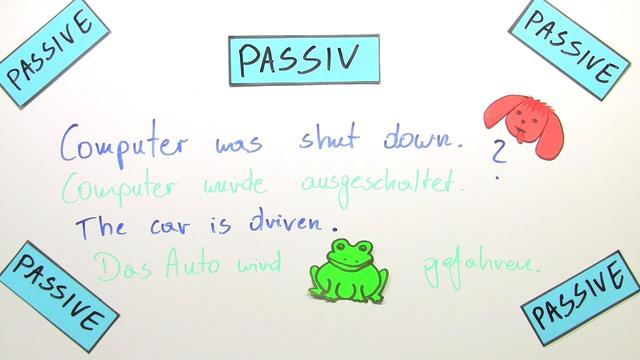 PASSIVE
PASSIV
PASSIVE
Computer was shut down. ?
Computer wurde ausgeschaltet.
The car is driven.
Das Auto wird gefahren.
PASSIVE
PASSIVE